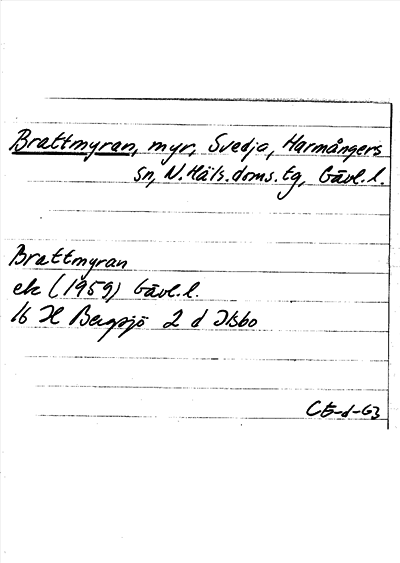 Brattmyran, myr, Svedja, Harmångers
sn, N.Häls.doms.tg, Gävl.l.
Brattmyran
ek (1959) Gävl.l.
16 H Bergsjö 2 d Ilsbo